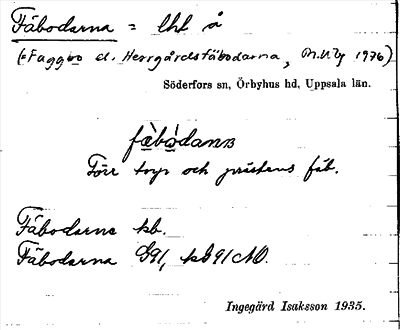 Fäbodarna = lhl å
(= Faggbo el. Herrgårdsfäbodarna, M.Uly 1976)
Söderfors sn, Örbyhus hd, Uppsala län.
fæ̀bòdanɴ
Förr torp och prästens fäb.
Fäbodarne kb.
Fäbodarna G91, kb91NO.
Ingegärd Isaksson 1935.